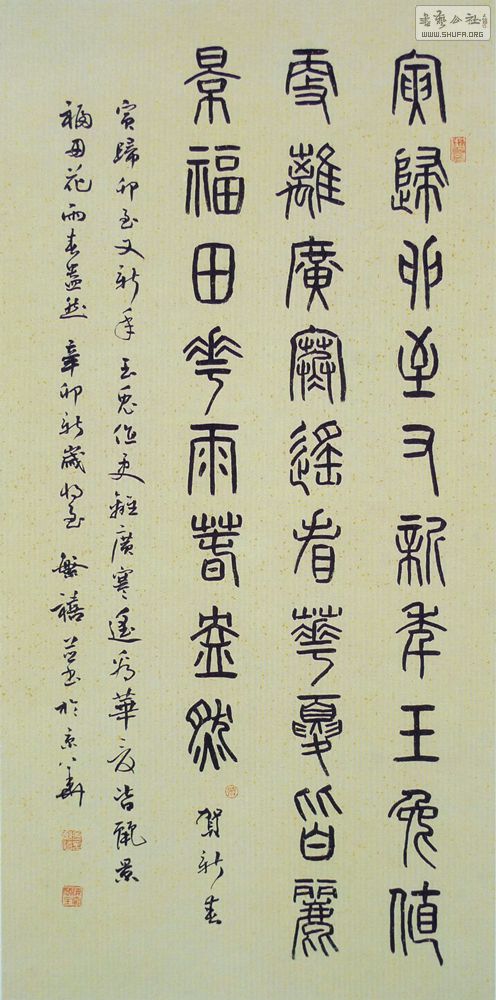 書藝公社
WWW.SHUFA.ORG
寅歸卯至又新年玉兔值
更離廣寒遙看華夏皆麗
景福田花雨春盎然
賀新春
寅歸卯至又新年玉兔值更離廣寒遙看華夏皆麗景
福田花雨春盎然 辛卯新歲將至 繁禧並書於京華